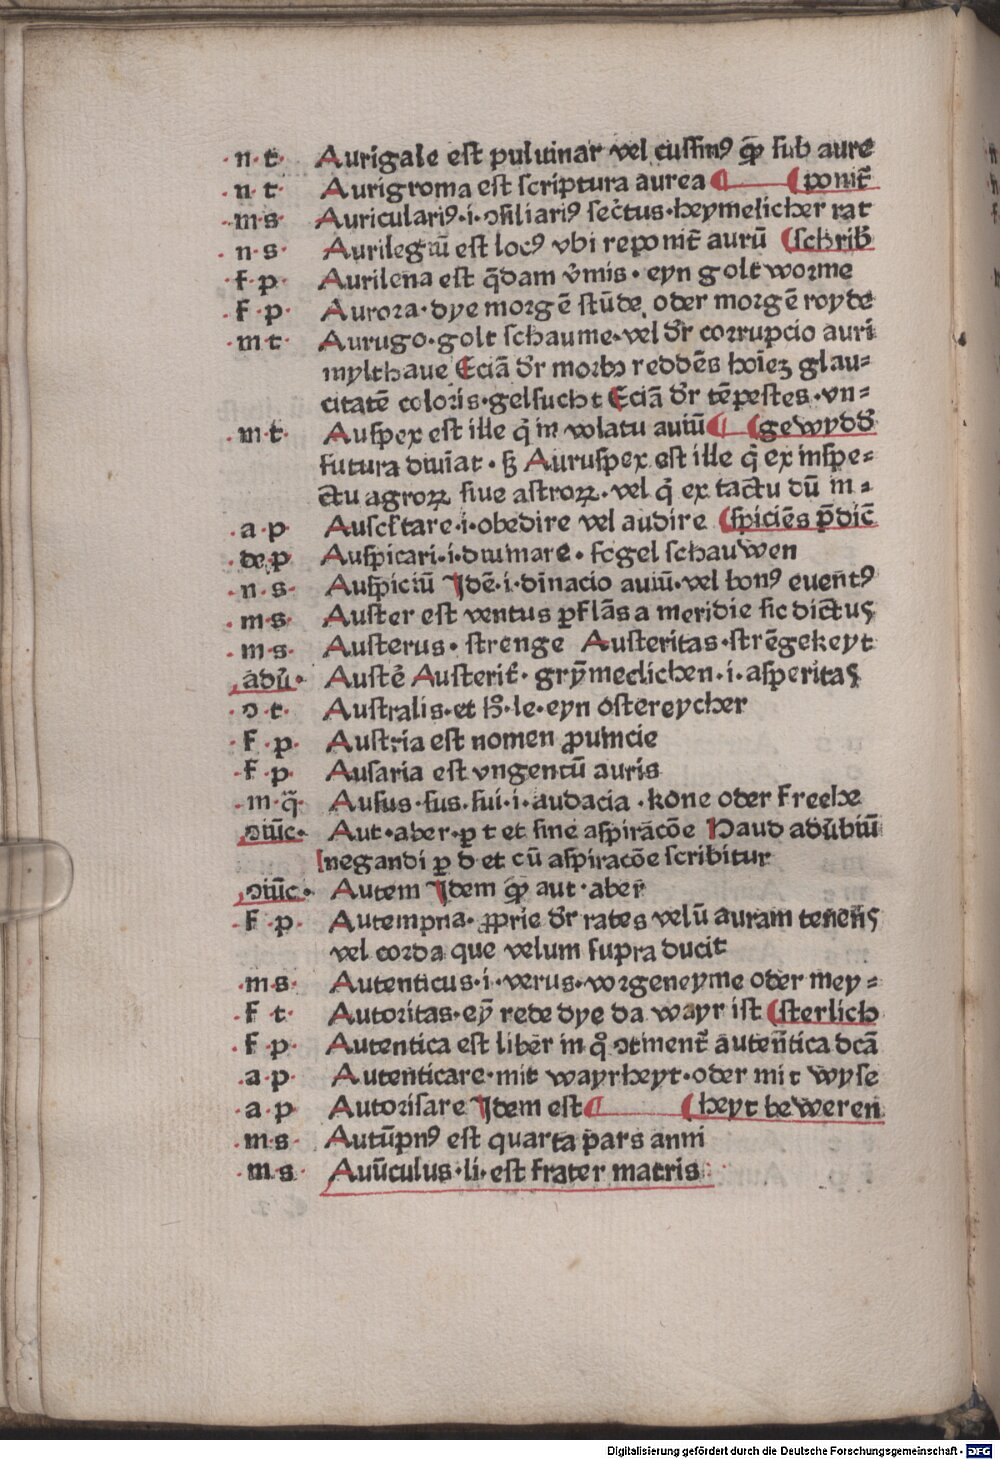 ·n·t· Aurigale est puluinar vel cussinꝰ qp̄ sub aure
·n·t· Aurigroma est scriptura aurea ¶ ponit᷑
·m·s· Auricularꝰ·i·ↄsiliariꝰ sec̄tus·heymelicher rat
·n·s· Aurilegiū est locꝰ vbi reponit᷑ aurū schrib᷑
·f·p· Aurilena est q̄dam v̓mis·eyn golt worme
·f·p· Aurora·dye morgē stūde oder morgē royde
·m·t· Aurugo·golt schaume·vel dr̄ corrupcio auri
mylthaue Eciā dr̄ morbꝰ reddēs hoīeꝫ glau⸗
citatē coloris·gelsucht Eciā dr̄ tēpestes·vn⸗
·m·t· Auspex est ille q̇ in volatu auiū ¶ gewydd᷑
futura diuīat·sꝫ Auruspex est ille q̇ ex inspe⸗
ctu agroꝝ siue astroꝝ·vel q̇ ex tactu dū in⸗
·a·p Auscl̓tare·i·obedire vel audire spiciēs p̄dic̄
·de·p Auspicari·i·diuinare·fogel schauwen
·n·s· Auspiciū Idē·i·diīnacio auiū·vel bonꝰ euentꝰ
·m·s· Auster est ventus ꝑflās a meridie sic dictus
·m·s· Austerus·strenge Austeritas·strēgekeyt
adū· Austē Austerit᷑·grȳmeclichen·i·asperitas
·ↄ·t· Australis·et h̄·le·eyn ostereycher
·F·p· Austria est nomen ꝓuincie
·F·p· Ausaria est vngentū auris
·m·q̄· Ausus·sus·sui·i·audacia·kone oder freche
ↄiūc· Aut·aber·ꝑ t et sine aspirac̄oe Haud adūbiū
negandi ꝑ d et cū aspirac̄oe scribitur
ↄiūc· Autem Idem qp̄ aut·aber
·F·p· Autempna·ꝓprie dr̄ rates velū auram tenens
vel corda que velum supra ducit
·m·s· Autenticus·i·verus·vorgeneyme oder mey⸗
·F·t· Autoritas·eȳ rede dye da wayr ist sterlich
·F·p· Autentica est liber in q̊ ↄtinent᷑ autentica dcā
·a·p· Autenticare·mit wayrheyt·oder mit wyse
·a·p Autorisare Idem est ¶ heyt beweren
·m·s· Autūpnꝰ est quarta pars anni
·m·s· Auūculus·li·est frater matris
Digitalisierung gefördert durch die Deutsche Forschungsgemeinschaft - DFG